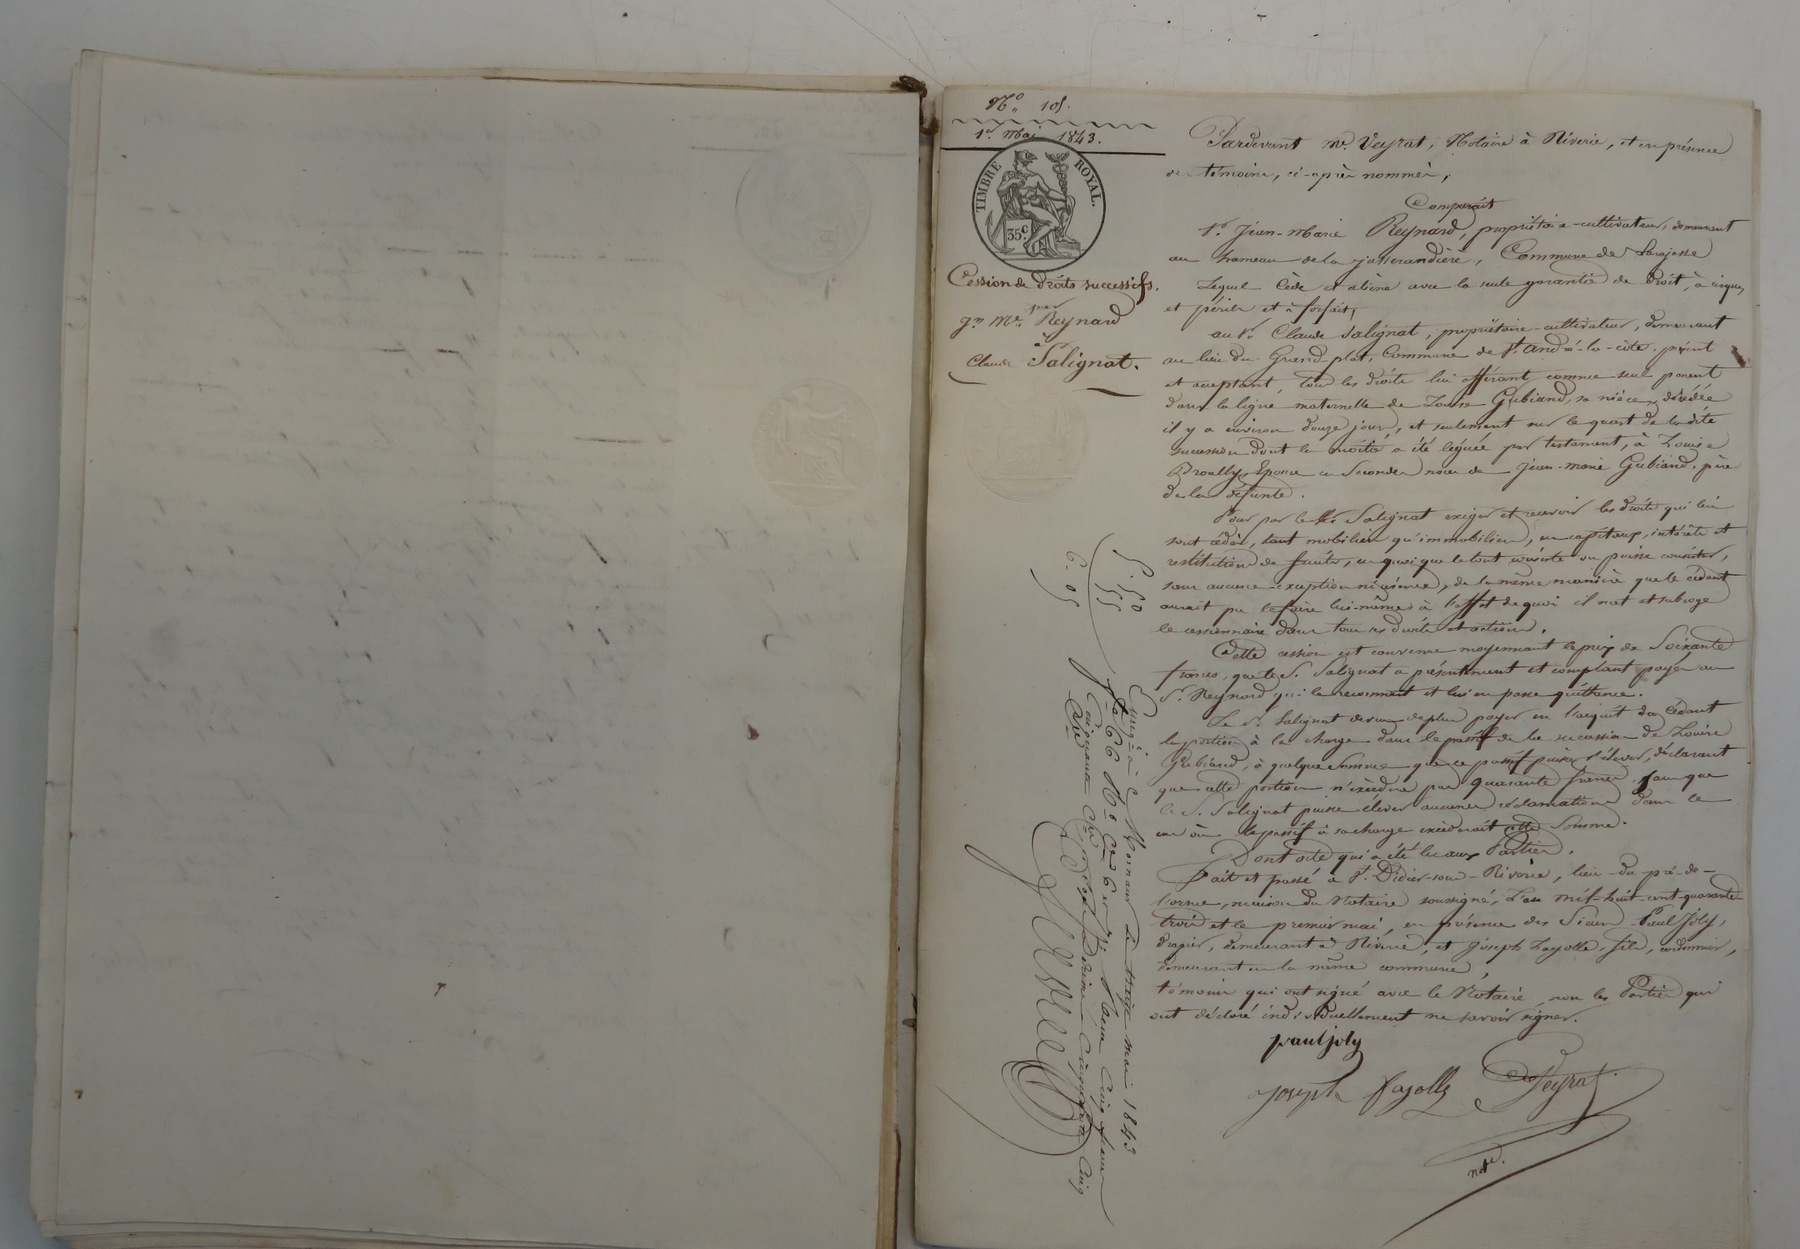 N.o 105.
1er Mai 1843.
TIMBRE ROYAL.
35c.
Cession de droits successifs.
par
Jn Me. Reynard
à
Claude Salignat.
Pardevant Me. Veyrat, Notaire à Riverie, et en présence
de témoins, ci-après nommés,
Comparait
Sr. Jean-Marie Reynard, propriétaire-cultivateur, demeurant
au hameau de la Jasserandière, Commune de Larajasse
Lequel cède et aliène avec la seule garantie de droit, à risques
et périls et à forfait,
au Sr. Claude Salignat, propriétaire-cultivateur, demeurant
au lieu du Grand plat, Commune de St. André-la-côte, présent
et acceptant, tous les droits lui afférant comme seul parent
dans la ligne maternelle de Louise Gubiand, sa nièce, décédée
il y a environ douze jours, et seulement sur le quart de la dite
succession dont la moitié a été léguée par testament, à Louise
Broally, Epouse en Secondes noces de Jean-marie Gubiand, père
de la défunte.
Pour par le Sr. Salignat exiger et recevoir les droits qui lui
sont cédés, tant mobiliers qu'immobiliers, en capitaux, intérêts et
restitution de fruits, en quoi que le tout consiste ou puisse consister,
sans aucune exception ni réserve, de la même manière que le cédant
aurait pu le faire lui-même à l'effet de quoi il met et subroge
le cessionnaire dans tous ses droits et actions.
Cette cession est convenue moyennant le prix de Soixante
francs, que le S. Salignat a présentement et comptant payé au
Sr. Reynard, qui le reconnait et lui en passe quittance.
Le Sr. Salignat devra de plus payer en l'acquit du Cédant
la portion à la charge dans le passif de la succession de Louise
Gubiand, à quelque somme que ce passif puisse s'élever, déclarant
que cette portion n'excèdera pas quarante francs, sans que
le S. Salignat puisse élever aucune réclamation dans le
cas où le passif à sa charge excèderait cette somme.
Dont acte qui a été lu aux Parties.
Fait et passé à St. Didier-sous-Riverie, lieu du pré-de-
l'orme, maison du Notaire soussigné, L'an mil-huit-cent-quarante-
trois et le premier mai, en présence des Sieurs Paul Joly,
drapier, demeurant à Riverie, et Joseph Fayolle, fils, cordonnier,
demeurant en la même commune,
témoins qui ont signé avec le Notaire, non les Parties qui
ont déclaré individuellement ne savoir signer.
paul joly
joseph fayolle
Veyrat
note.
5. 50
55
6. 05
Enregé à Mornant le treize mai 1843
fo 66 Ro Ces 6 et 7. Reçu Cinq francs
Cinquante Ces Et pour Décime Cinquante Cinq
Ces